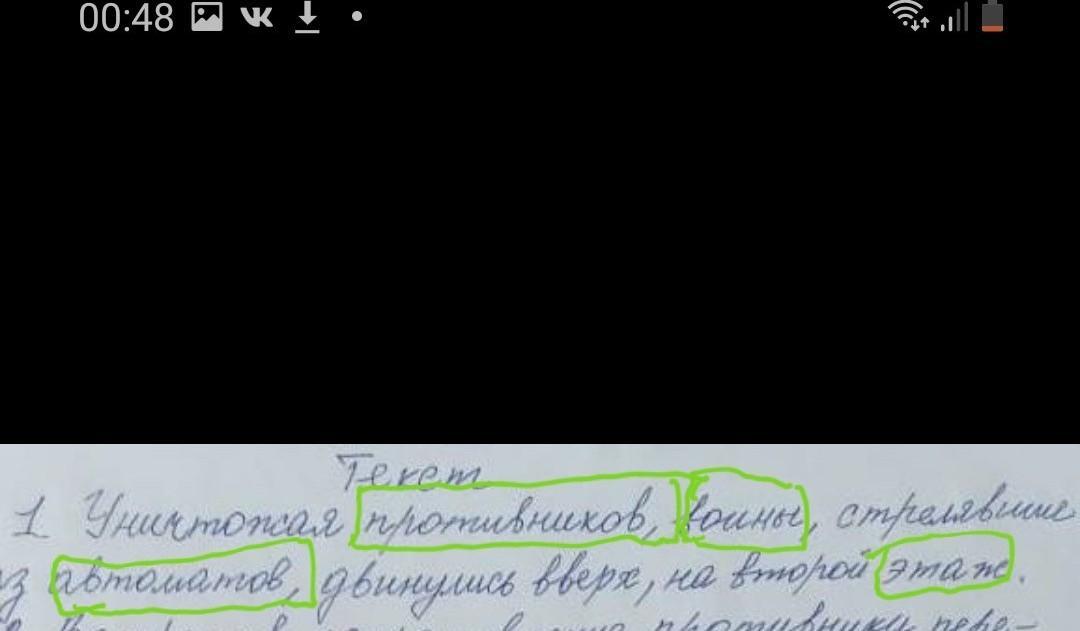 00:48
Текст
1. Уничтожая противников, воины, стрелявшие
из автоматов, двинулись вверх, на второй этаж.
противники пере-